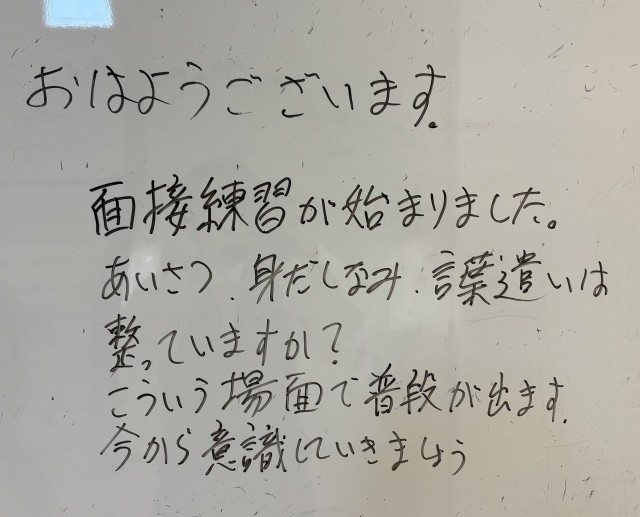 おはようございます.
面接練習が始まりました。
あいさつ.身だしなみ.言葉遣いは
整っていますか？
こういう場面で普段が出ます.
今から意識していきましょう